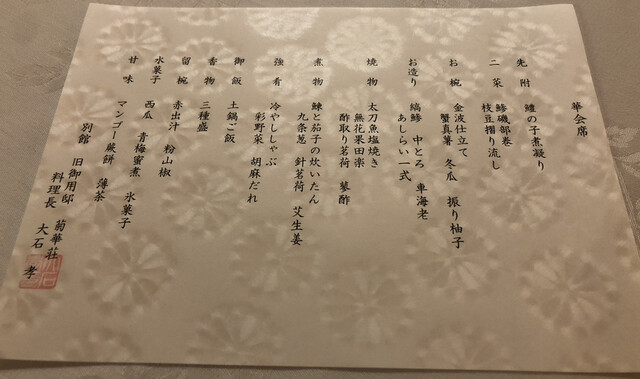 華会席
先附 鱧の子煮凝り
二菜 鯵磯部巻
枝豆摺り流し
お椀 金波仕立て
蟹真薯 冬瓜 振り柚子
お造り 縞鯵 中とろ 車海老
あしらい一式
焼物 太刀魚塩焼き
無花果田楽
酢取り茗荷 蓼酢
煮物 鰊と茄子の炊いたん
九条葱 針茗荷 艾生姜
強肴 冷やししゃぶ
彩野菜 胡麻だれ
御飯 土鍋ご飯
香物 三種盛
留椀 赤出汁 粉山椒
水菓子 西瓜 青梅蜜煮 氷菓子
甘味 マンゴー蕨餅 薄茶
別館 旧御用邸 菊華荘
料理長 大石 孝